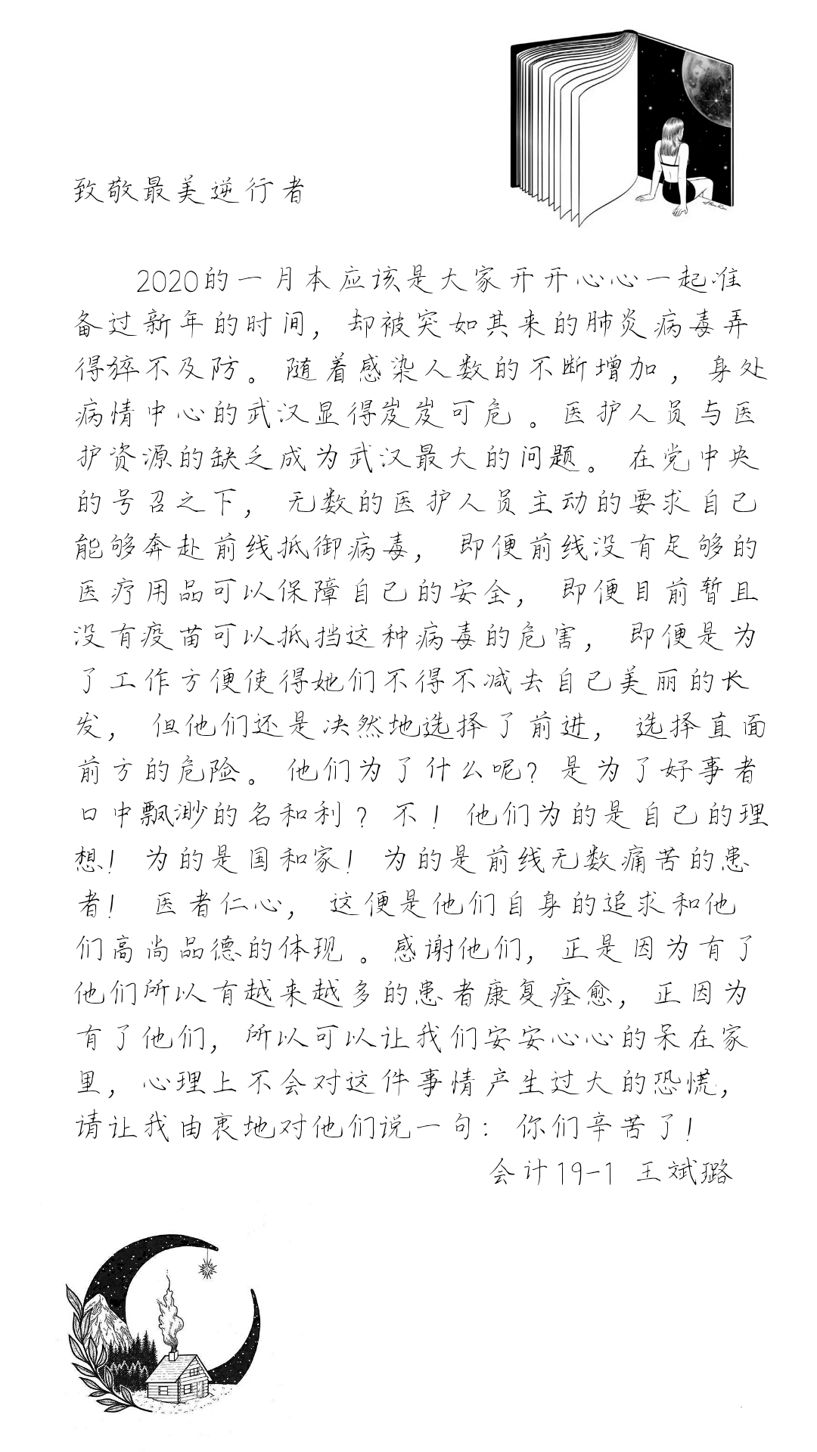 致敬最美逆行者
2020的一月本应该是大家开开心心一起准
备过新年的时间，却被突如其来的肺炎病毒弄
得猝不及防。随着感染人数的不断增加，身处
病情中心的武汉显得岌岌可危。医护人员与医
护资源的缺乏成为武汉最大的问题。在党中央
的号召之下，无数的医护人员主动的要求自己
能够奔赴前线抵御病毒，即便前线没有足够的
医疗用品可以保障自己的安全，即便目前暂且
没有疫苗可以抵挡这种病毒的危害，即便是为
了工作方便使得她们不得不减去自己美丽的长
发，但他们还是决然地选择了前进，选择直面
前方的危险。他们为了什么呢？是为了好事者
口中飘渺的名和利？不！他们为的是自己的理
想！为的是国和家！为的是前线无数痛苦的患
者！医者仁心，这便是他们自身的追求和他
们高尚品德的体现。感谢他们，正是因为有了
他们所以有越来越多的患者康复痊愈，正因为
有了他们，所以可以让我们安安心心的呆在家
里，心理上不会对这件事情产生过大的恐慌，
请让我由衷地对他们说一句：你们辛苦了！
会计19-1 王斌璐